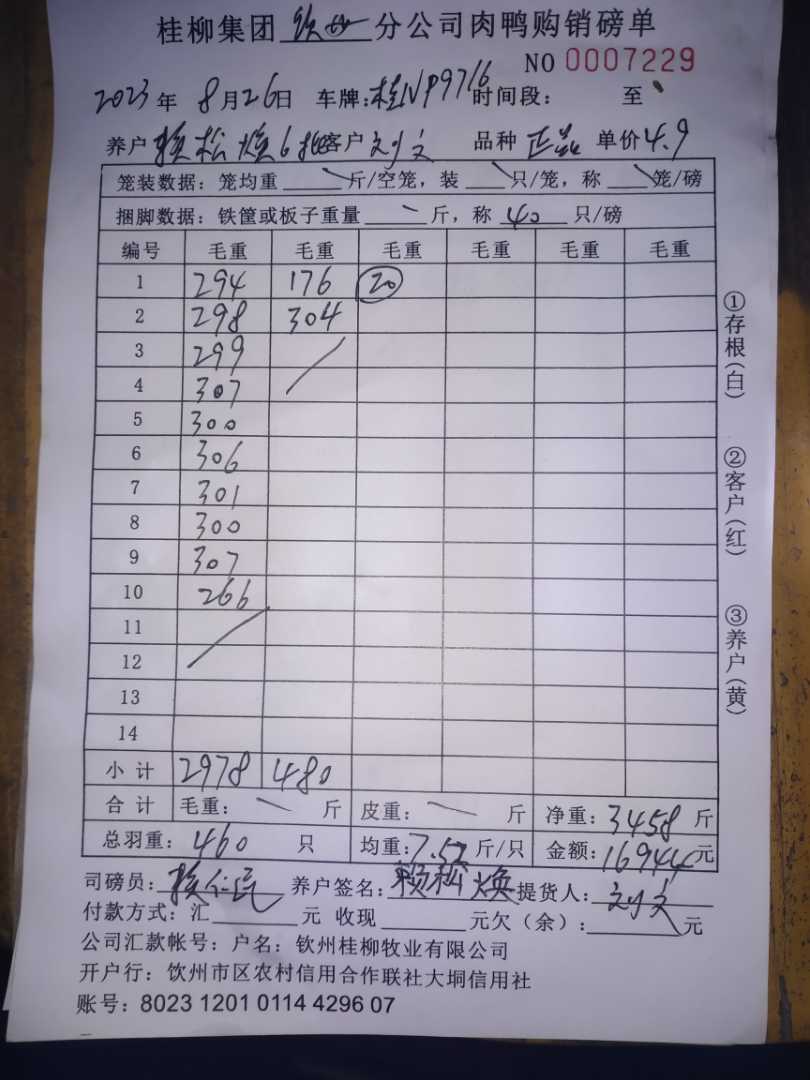 桂柳集团 钦州 分公司肉鸭购销磅单
NO 0007229
2023 年 8 月 26 日 车牌: 桂NP9716 时间段: 至
养户 赖松焕 6批 客户 刘文 品种 正品 单价 4.9
笼装数据: 笼均重 斤/空笼, 装 只/笼, 称 笼/磅
捆脚数据: 铁筐或板子重量 斤, 称 40 只/磅
编号 毛重 毛重 毛重 毛重 毛重 毛重
1 294 176 20
2 298 304
3 299
4 307
5 300
6 306
7 301
8 300
9 307
10 266
11
12
13
14
小计 2978 480
合计 毛重: 斤 皮重: 斤 净重: 3458 斤
总羽重: 460 只 均重: 7.52 斤/只 金额: 16944 元
司磅员: 养户签名: 赖松焕 提货人: 刘文
付款方式: 汇 元 收现 元欠(余): 元
公司汇款帐号: 户名: 钦州桂柳牧业有限公司
开户行: 饮州市区农村信用合作联社大垌信用社
账号: 8023 1201 0114 4296 07
①存根(白)
②客户(红)
③养户(黄)